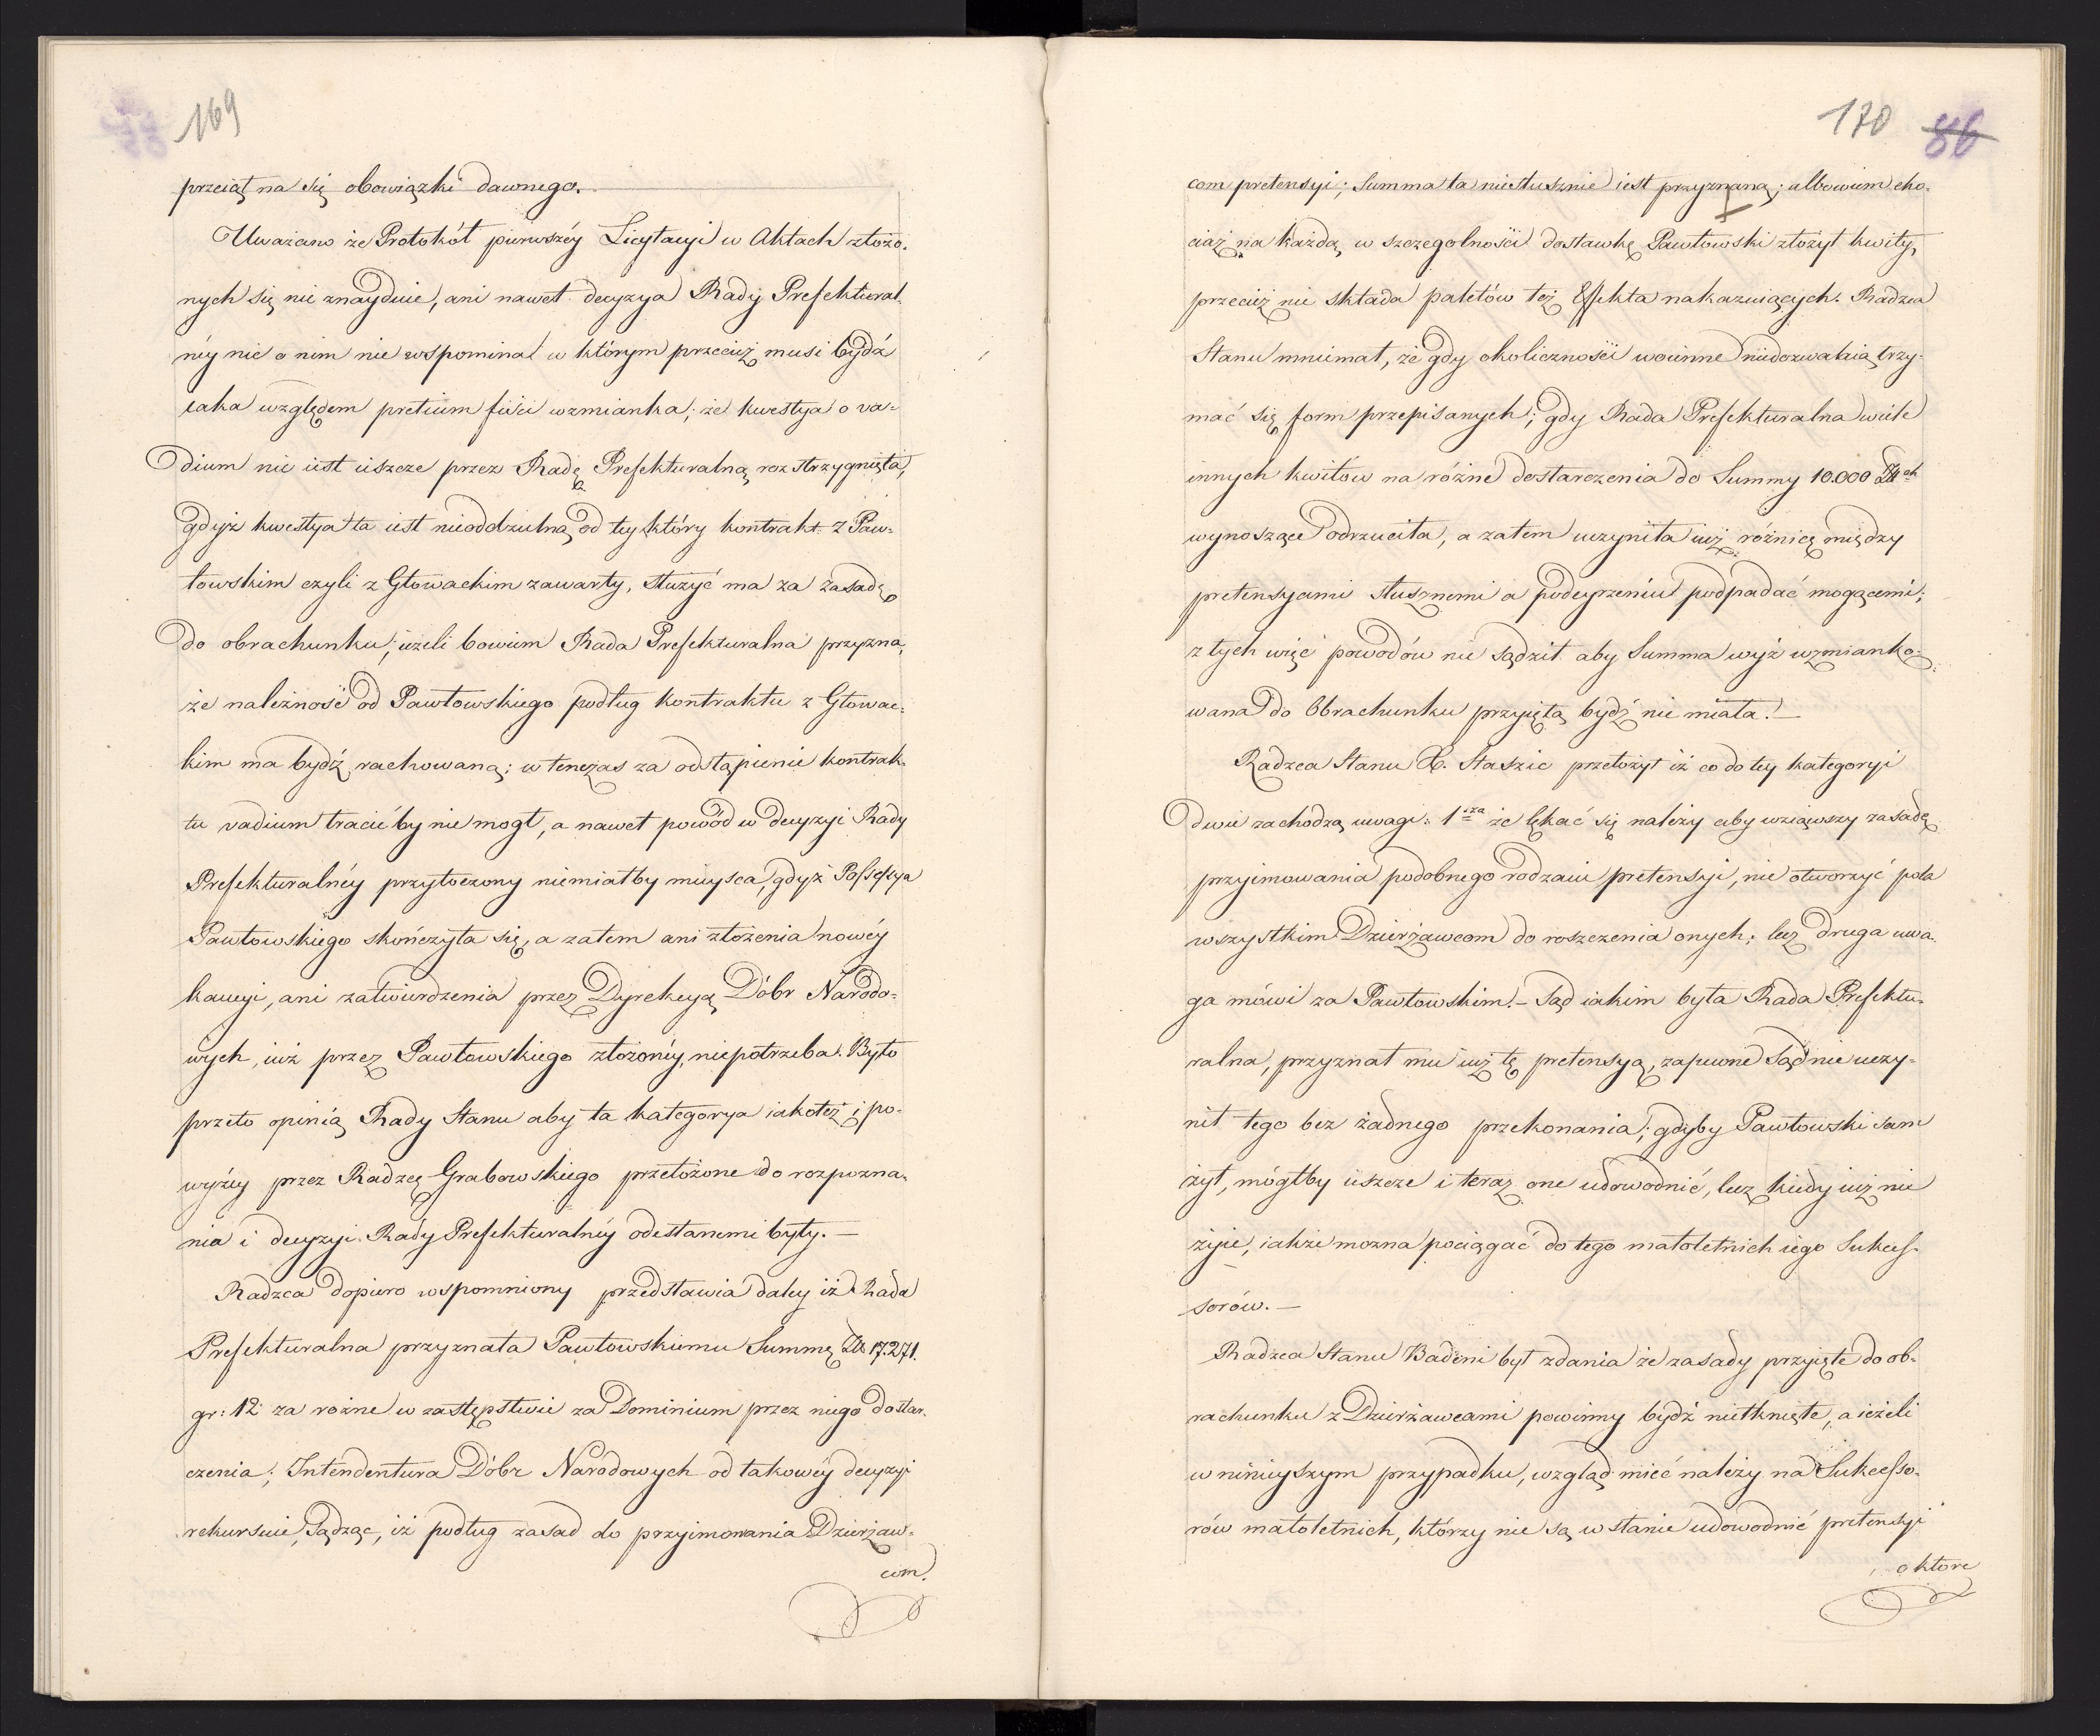 169
przeiął na się obowiązki dawnego.
Uważano że Protokół pierwszéy Licytacyi w Aktach złożo-
nych się nie znayduie, ani nawet decyzya Rady Prefektural-
néy nic o nim nie wspomina w którym przecież musi bydź
iaka względem pretium fisci wzmianka; że kwestya o va-
dium nie iest ieszcze przez Radę Prefekturalną rozstrzygnięta,
gdyż kwestya ta iest nieoddzielną od tey, który kontrakt z Paw-
łowskim czyli z Głowackim zawarty, służyć ma za zasadę
do obrachunku; ieżeli bowiem Rada Prefekturalna przyzna,
że należność od Pawłowskiego podług kontraktu z Głowac-
kim ma bydź rachowaną; w tenczas za odstąpienie kontrak-
tu vadium tracić by nie mogł, a nawet powód w decyzyi Rady
Prefekturalnéy przytoczony niemiałby mieysca, gdyż Possessya
Pawłowskiego skończyła się, a zatem ani złożenia nowéy
kaucyi, ani zatwierdzenia przez Dyrekcyą Dóbr Narodo-
wych, iuż przez Pawłowskiego złożonéy, niepotrzeba. Było
przeto opinią Rady Stanu aby ta kategorya iakoteż i po-
wyżéy przez Radzcę Grabowskiego przełożone do rozpozna-
nia i decyzyi Rady Prefekturalnéy odesłanemi były. —
Radzca dopiero wspomniony przedstawia daley iż Rada
Prefekturalna przyznała Pawłowskiemu Summę Zł 17.271.
gr: 12 za rożne w zastępstwie za Dominium przez niego dostar-
czenia; Intendentura Dóbr Narodowych od takowéy decyzyi
rekursuie, sądząc, iż podług zasad do przyimowania Dzierżaw-
com.
170 86
com pretensyi; Summa ta niesłusznie iest przyznaną; albowiem cho-
ciaż na każdą w szczegolności dostawkę Pawłowski złożył kwity,
przecież nie składa paletów też Effekta nakazuiących. Radzca
Stanu mniemał, że gdy okoliczności woienne niedozwalaią trzy-
mać się form przepisanych; gdy Rada Prefekturalna wiele
innych kwitów na różne dostarczenia do Summy 10.000 Złch
wynoszące odrzuciła, a zatem uczyniła iuż różnicę między
pretensyami słusznemi a podeyrzeniu podpadać mogącemi;
z tych więc powodów nie sądził aby Summa wyż wzmianko-
wana do Obrachunku przyiętą bydź nie miała. —
Radzca Stanu X. Staszic przełożył iż co do tey kategoryi
dwie zachodzą uwagi: 1sza że lękać się należy aby wziąwszy zasadę
przyimowania podobnego rodzaiu pretensyi, nie otworzyć pola
wszystkim Dzierżawcom do roszczenia onych; lecz druga uwa-
ga mówi za Pawłowskim. — Sąd iakim była Rada Prefektu-
ralna, przyznał mu iuż tę pretensyą, zapewne Sąd nie uczy-
nił tego bez żadnego przekonania; gdyby Pawłowski sam
żył, mógłby ieszcze i teraz one udowodnić, lecz kiedy iuż nie
żyie, iakże mozna pociągać do tego małoletnich iego Sukces-
sorów. —
Radzca Stanu Badeni był zdania że zasady przyięte do ob-
rachunku z Dzierżawcami powinny bydź nietknięte, a ieżeli
w ninieyszym przypadku, wzgląd mieć należy na Sukcesso-
rów małoletnich, którzy nie są w stanie udowodnić pretensyi
o ktore